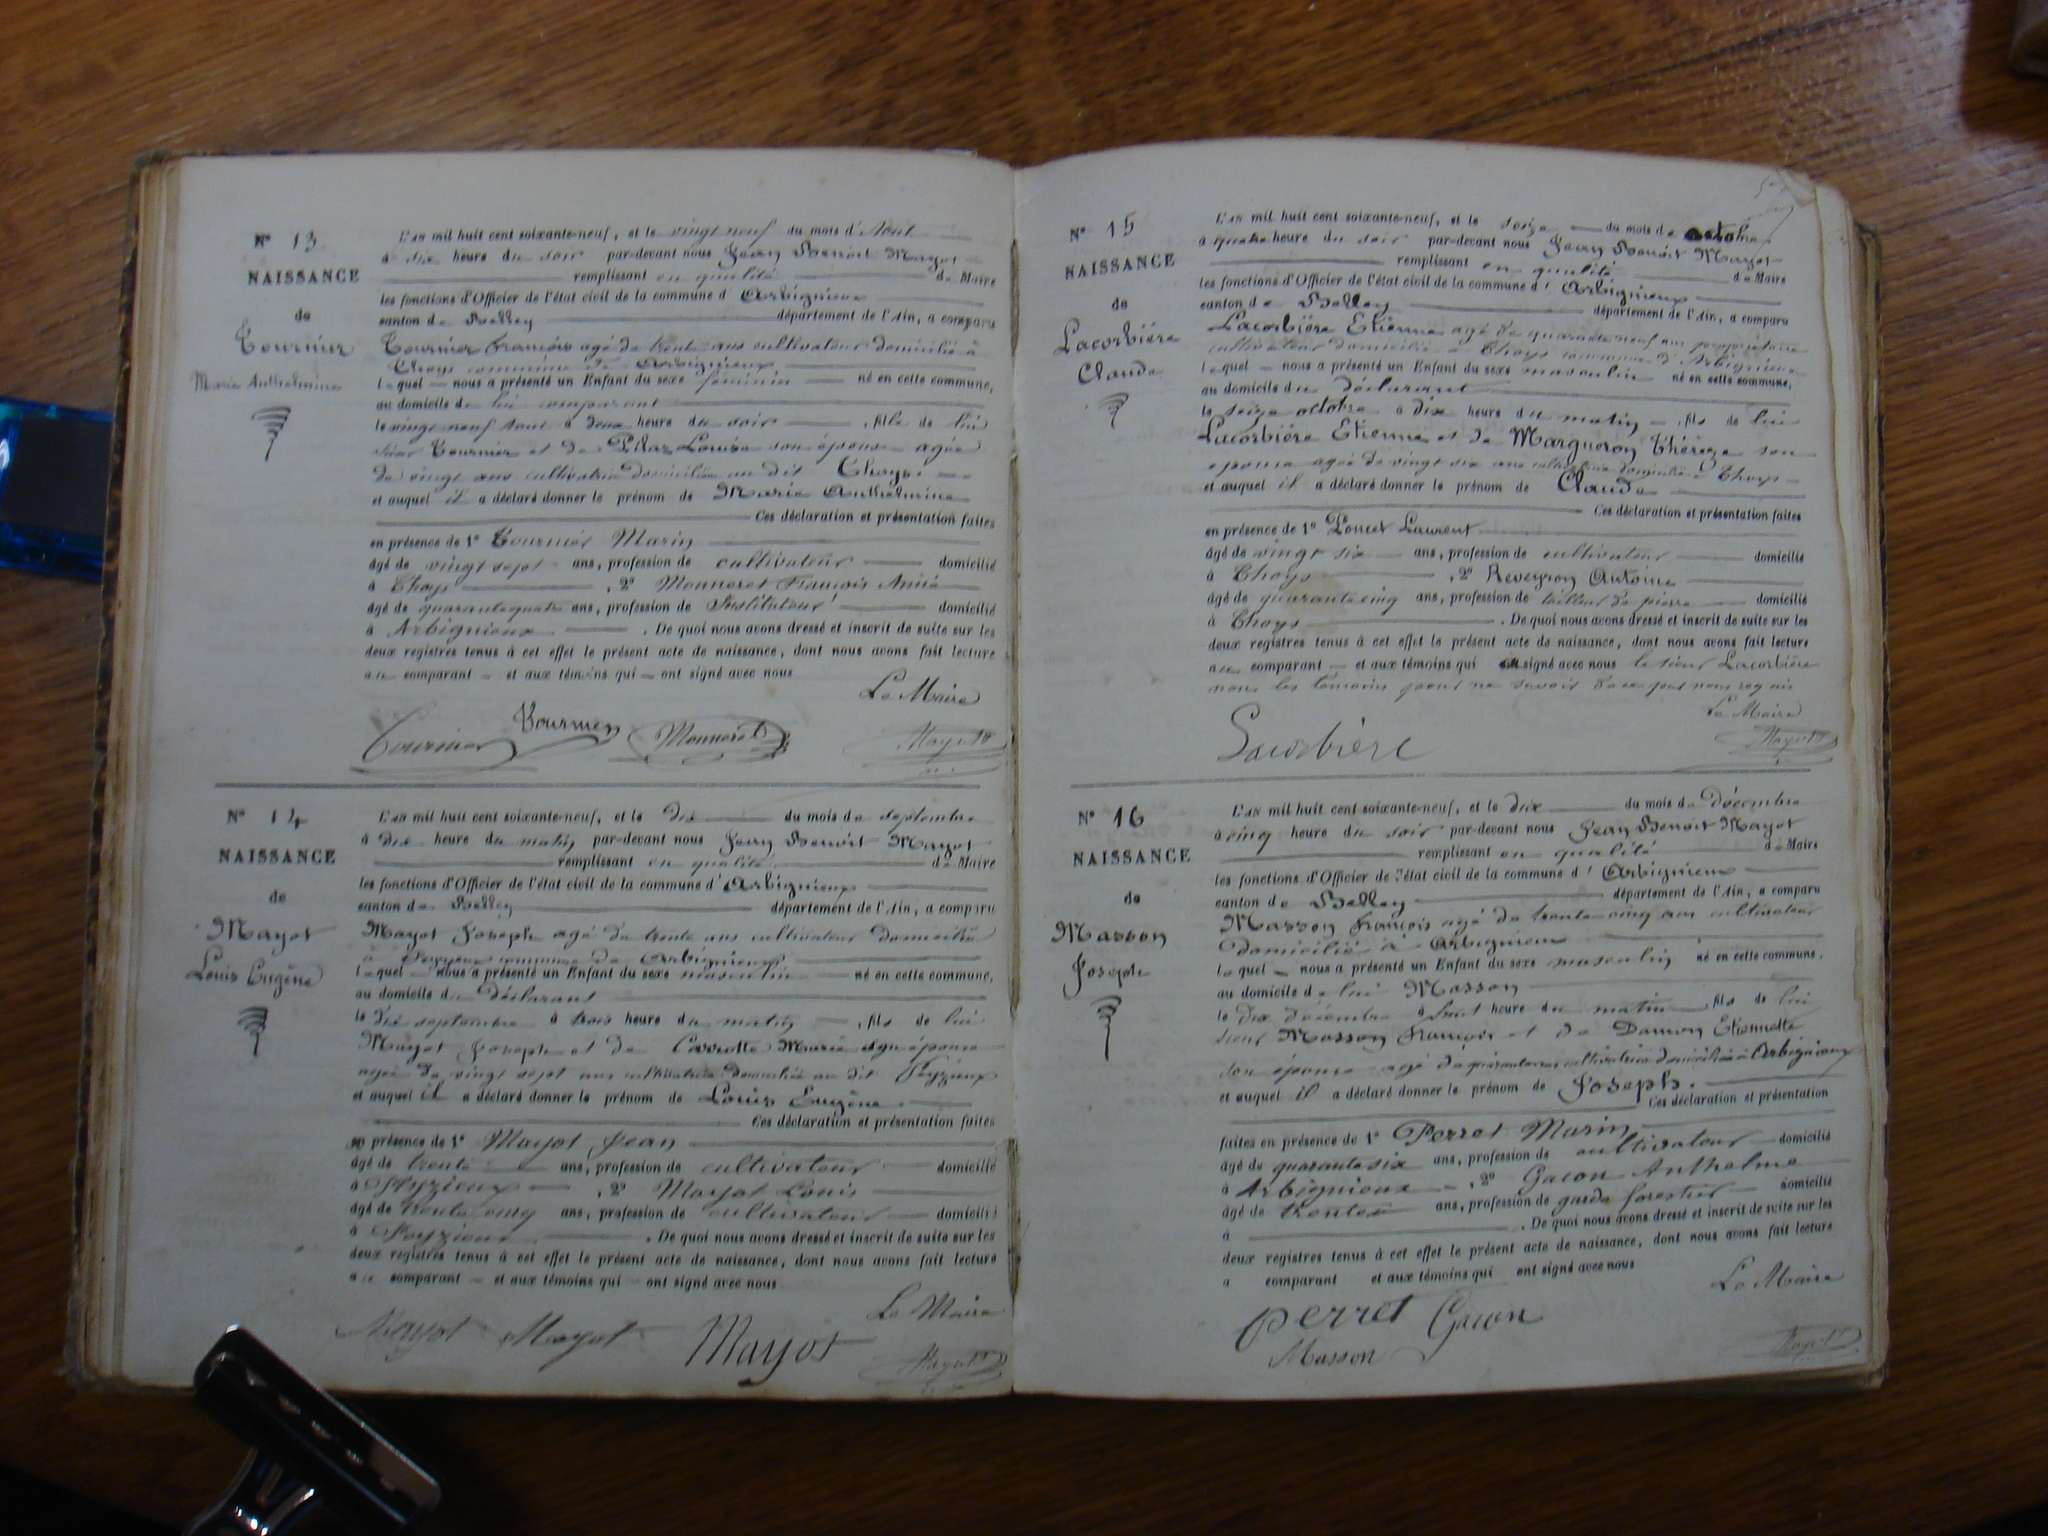 N° 13
NAISSANCE
de
Tournier
Marie Anthelmine
L'an mil huit cent soixante-neuf, et le vingt neuf du mois d'Aout
à six heure du soir par-devant nous Jean Benoit Mayot
remplissant en qualité de Maire
les fonctions d'Officier de l'état civil de la commune d'Arbignieux
canton de Belley département de l'Ain, a comparu
Tournier francois agé de trente ans cultivateur domicilié à
Thoys commune de Arbignieux
lequel nous a présenté un Enfant du sexe féminin né en cette commune,
au domicile de lui comparant
le vingt neuf Aout à deux heure du soir , fille de lui
sieur Tournier et de Louise son épouse agée
de vingt ans cultivatrice domiciliée au dit Thoys
et auquel il a déclaré donner le prénom de Marie Anthelmine
Ces déclaration et présentation faites
en présence de 1° Tournier Marin
âgé de vingt sept ans, profession de cultivateur domicilié
à Thoys , 2° Monneret Francois Aimé
âgé de quarante quatre ans, profession de Instituteur domicilié
à Arbignieux . De quoi nous avons dressé et inscrit de suite sur les
deux registres tenus à cet effet le présent acte de naissance, dont nous avons fait lecture
au comparant et aux témoins qui ont signé avec nous
Le Maire
Tournier Tournier Monneret Mayot
N° 14
NAISSANCE
de
Mayot
Louis Eugène
L'an mil huit cent soixante-neuf, et le dix du mois de septembre
à dix heure du matin par-devant nous Jean Benoit Mayot
remplissant en qualité de Maire
les fonctions d'Officier de l'état civil de la commune d'Arbignieux
canton de Belley département de l'Ain, a comparu
Mayot Joseph agé de trente ans cultivateur domicilié
à Peyzieux commune de Arbignieux
lequel nous a présenté un Enfant du sexe masculin né en cette commune,
au domicile du déclarant
le dix septembre à trois heure du matin , fils de lui
Mayot Joseph et de Marie son épouse
agée de vingt sept ans cultivatrice domiciliée au dit Peyzieux
et auquel il a déclaré donner le prénom de Louis Eugène
Ces déclaration et présentation faites
en présence de 1° Mayot Jean
âgé de trente ans, profession de cultivateur domicilié
à Peyzieux , 2° Mayot Louis
âgé de trente cinq ans, profession de cultivateur domicilié
à Peyzieux . De quoi nous avons dressé et inscrit de suite sur les
deux registres tenus à cet effet le présent acte de naissance, dont nous avons fait lecture
au comparant et aux témoins qui ont signé avec nous
Le Maire
Mayot Mayot Mayot Mayot
N° 15
NAISSANCE
de
Lacorbière
Claude
L'an mil huit cent soixante-neuf, et le seize du mois de octobre
à quatre heure du soir par-devant nous Jean Benoit Mayot
remplissant en qualité de Maire
les fonctions d'Officier de l'état civil de la commune d'Arbignieux
canton de Belley département de l'Ain, a comparu
Lacorbière Etienne agé de quarante neuf ans propriétaire
cultivateur domicilié à Thoys commune d'Arbignieux
lequel nous a présenté un Enfant du sexe masculin né en cette commune,
au domicile du déclarant
le seize octobre à dix heure du matin , fils de lui
Lacorbière Etienne et de Margueron Thérèze son
epouse agée de vingt six ans cultivatrice domiciliée à Thoys
et auquel il a déclaré donner le prénom de Claude
Ces déclaration et présentation faites
en présence de 1° Poncet Laurent
âgé de vingt six ans, profession de cultivateur domicilié
à Thoys , 2° Reveyron Antoine
âgé de quarante cinq ans, profession de tailleur de pierre domicilié
à Thoys . De quoi nous avons dressé et inscrit de suite sur les
deux registres tenus à cet effet le présent acte de naissance, dont nous avons fait lecture
au comparant et aux témoins qui a signé avec nous le sieur Lacorbière
non les témoins pour ne savoir de ce par nous requis
Le Maire
Lacorbière Mayot
N° 16
NAISSANCE
de
Masson
Joseph
L'an mil huit cent soixante-neuf, et le dix du mois de décembre
à cinq heure du soir par-devant nous Jean Benoit Mayot
remplissant en qualité de Maire
les fonctions d'Officier de l'état civil de la commune d'Arbignieux
canton de Belley département de l'Ain, a comparu
Masson françois agé de trente cinq ans cultivateur
domicilié à Arbignieux
lequel nous a présenté un Enfant du sexe masculin né en cette commune.
au domicile de lui Masson
le dix décembre à huit heure du matin , fils de lui
sieur Masson François et de Damon Etiennette
son épouse agé de quarante ans cultivatrice domiciliée à Arbignieux
et auquel il a déclaré donner le prénom de Joseph.
Ces déclaration et présentation
faites en présence de 1° Perret Marin
âgé de quarante six ans, profession de cultivateur domicilié
à Arbignieux , 2° Gacon Anthelme
âgé de ans, profession de garde forestier domicilié
à . De quoi nous avons dressé et inscrit de suite sur les
deux registres tenus à cet effet le présent acte de naissance, dont nous avons fait lecture
a comparant et aux témoins qui ont signé avec nous
Le Maire
Perret Gacon
Masson Mayot